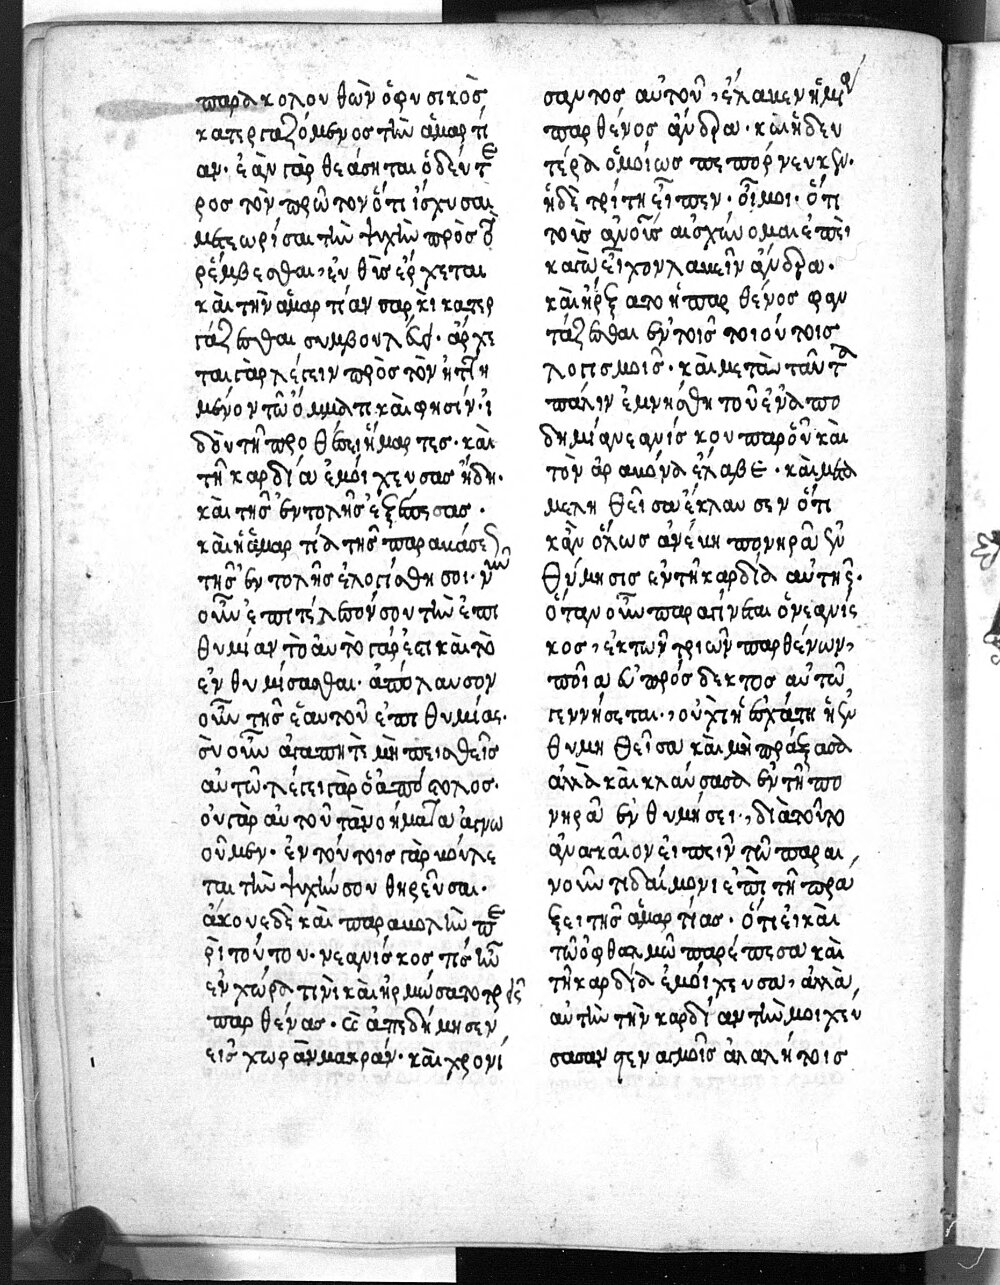 παρακολουθῶν ὁ φυσικὸς
κατεργαζόμενος τὴν ἁμαρτί
αν· ἐὰν γὰρ θεάσηται ὁ δεύτε
ρος τὸν πρῶτον ὅτι ἴσχυσαι
μετεωρίσαι τὴν ψυχὴν πρὸς τὸ
ρέμβεσθαι, εὐθὺς ἔρχεται
καὶ τὴν ἁμαρτίαν σαρκὶ κατερ
γάζεσθαι συμβουλεύει· ἄρχε
ται γὰρ λέγειν πρὸς τὸν ἡττη
μένον τῶ ὄμματι καὶ φησίν· ἰ
δοὺ τῆ προθέσει ἥμαρτες· καὶ
τῆ καρδία ἐμοίχευσας ἤδη·
καὶ τῆς ἐντολῆς ἐξέπεσας·
καὶ ἡ ἁμαρτία τῆς παραβάσεως
τῆς ἐντολῆς ἐλογίσθη σοι· νῦν
οὖν ἐπιτέλεσον σου τὴν ἐπι
θυμίαν τὸ αὐτὸ γάρ ἐστι καὶ τὸ
ἐνθυμίσασθαι· ἀπόλαυσον
οὖν τῆς ἑαυτοῦ ἐπιθυμίας·
σὺ οὖν ἀγαπητὲ μὴ πεισθεῖς
αὐτῶ· λέγει γὰρ ὁ ἀπόστολος·
οὐ γὰρ αὐτοῦ τὰ νοήματα ἀγνω
οῦμεν· ἐν τούτοις γὰρ βούλε
ται τὴν ψυχήν σου θηρεῦσαι·
ἄκουε δὲ καὶ παραβολὴν πε
ρὶ τούτου· νεανίσκος τίς ἦν
ἐν χώρα τινὶ καὶ ἡρμώσατο τρεῖς
παρθένας· καὶ ἀπεδήμησεν
εἰς χωρὰν μακράν· καὶ χρονί
σαντος αὐτοῦ, ἔλαβεν ἡ μία
παρθένος ἄνδρα· καὶ ἡ δευ
τέρα ὁμοίως πεπόρνευκεν·
ἡ δὲ τρίτη εἶπεν· οἴμοι· ὅτι
τοὺς ἀνοῦς αἰσχύνομαι ἐπεὶ
κἀγὼ εἶχον λαβεῖν ἄνδρα·
καὶ ἤρξατο ἡ παρθένος φαν
τάζεσθαι ἐν τοῖς τοιούτοις
λογισμοῖς· καὶ μετὰ ταῦτα
πάλιν ἐμνήσθη τοῦ ἐν ἀπο
δημία νεανίσκου παρ᾽ οὗ καὶ
τὸν ἀραβόνα ἔλαβε· καὶ μετα
μεληθεῖσα ἔκλαυσεν ὅτι
κἂν ὅλως ἀνέβη πονηρὰ ἐν
θύμησις ἐν τῆ καρδία αὐτῆς·
ὅταν οὖν παραγίνεται ὁ νεανίς
κος, ἐκ τῶν τριῶν παρθένων,
ποία εὐπρόσδεκτος αὐτῶ
γεννήσεται, οὐχὶ ἡ ἐσχάτη ἡ ἐν
θυμηθεῖσα καὶ μὴ πράξασα
ἀλλὰ καὶ κλαύσασα ἐν τῆ πο
νηρᾶ ἐνθυμήσει, διὰ τοῦτο
ἀναγκαῖον εἰπεῖν τῶ παραι
νοῦντι δαίμονι ἐπὶ τῆ πρά
ξει τῆς ἁμαρτίας· ὅτι εἰ καὶ
τῶ ὀφθαλμῶ παρέπεσα καὶ
τῆ καρδία ἐμοίχευσα, ἀλλὰ
αὐτὴν τὴν καρδίαν τὴν μοιχεύ
σασαν στεναγμοῖς ἀλαλήτοις